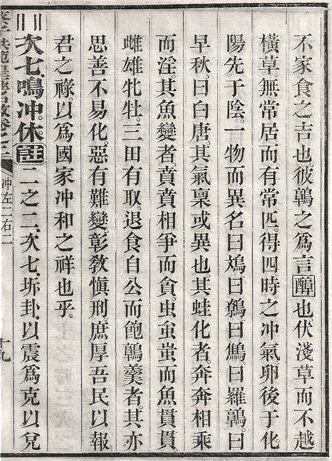 不家食之吉也。彼鶉之爲言醇也伏淺草而不越
橫草無常居而有常匹。得四時之冲氣卵後于化
陽先于陰。一物而異名曰曰曰曰羅鶉。曰
早秋。曰白唐。其氣稟或異也。其蛙化者奔奔相乘
而淫。其魚變者。賁賁相爭而食虫而魚貫貫
雌雄牝牡。三田有取。退食自公而飽鶉羹者。其亦
思善不易化惡有難變。彰教慎刑庶厚吾民以報
君之祿。以爲國家冲和之祥也乎。
次七。鳴冲。休註二之二。次七。坼卦以震爲克以兌
冲左二右二
十九